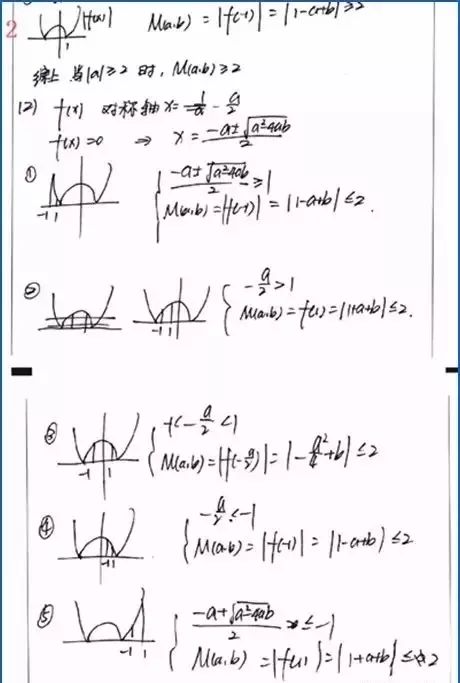 2 |f(x)| M(a,b) = |f(-1)| = |1-a+b| ≥ 2
1
综上 当|a|≥2 时, M(a,b)≥2
(2) f(x) 对称轴 x= -a/2
f(x)=0 ⇒ x = (-a±√(a²-4ab))/2
① { (-a±√(a²-4ab))/2 ≥ 1
-1 1 M(a,b)=|f(-1)| = |1-a+b| ≤ 2.
② { -a/2 > 1
-1 1 M(a,b)=f(1)=|1+a+b| ≤ 2.
③ { -1< -a/2 <1
-1 1 M(a,b)=|f(-a/2)|=|-a²/4+b| ≤ 2
④ { -a/2 < -1
-1 1 M(a,b)=|f(-1)| = |1-a+b| ≤ 2
⑤ { (-a+√(a²-4ab))/2 ≤ -1
-1 1 M(a,b) = |f(1)| = |1+a+b| ≤ 2